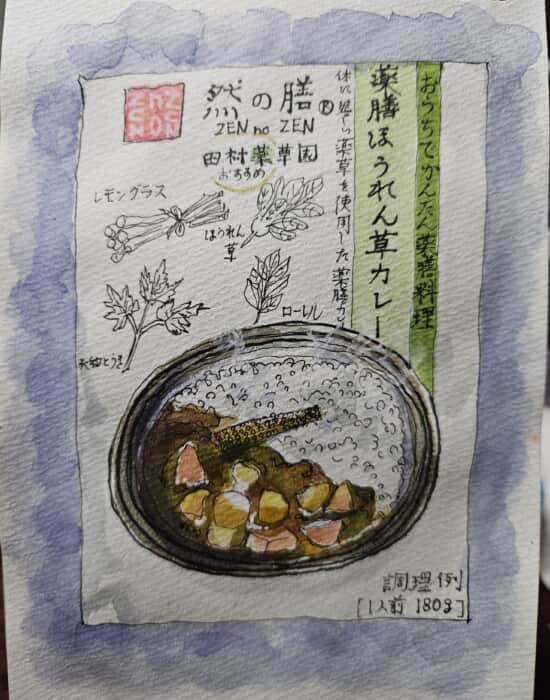 然の膳®
ZEN no ZEN
田村薬草園
おすすめ
レモングラス
ほうれん草
大和とうき
ローレル
おうちでかんたん薬膳料理
薬膳ほうれん草カレー
体に思う薬草を使用した薬膳カレー
調理例
[1人前 180g]